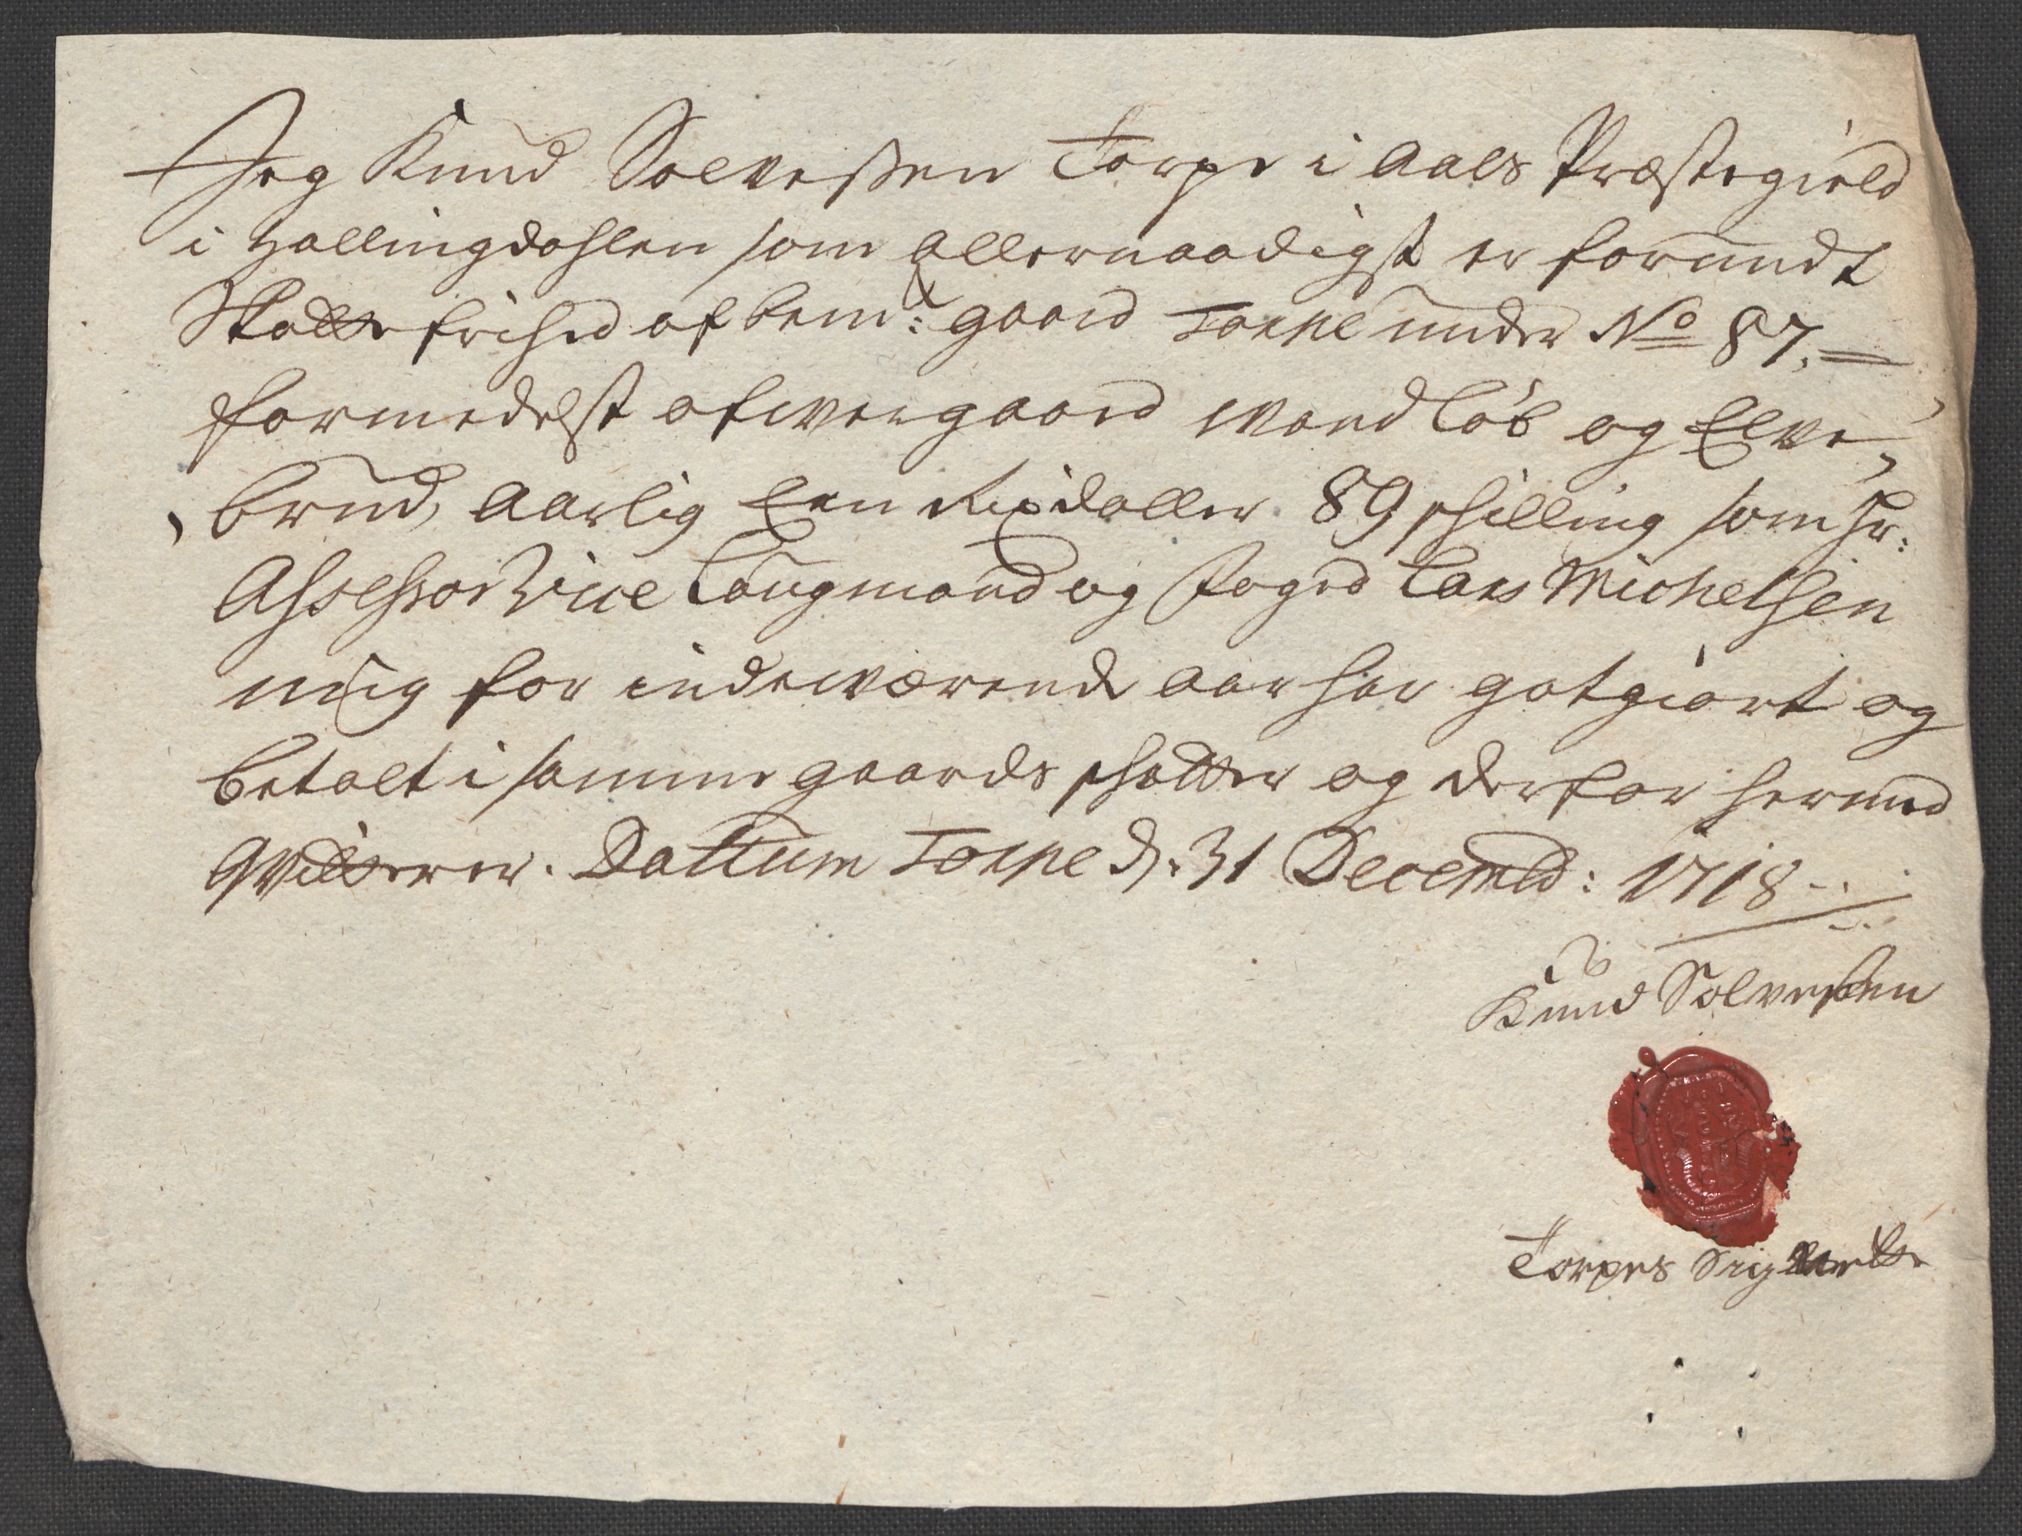 Jeg Knud Solvessen Torpe i Aals Præstegield
i Hallingdahlen som allernaadigst er forundt
Skattefrihed af bemt: gaard Torpe under No 87.
formedelst ofwergaard wand løb og Elve,
brud, aarlig Een Rixdaller 89 skilling som Hr:
Assessor Vice Laugmand og Foged Lars Michelsen
mig for indeværende aar har gotgiort og
betalt i samme gaards skatter og derfor hermed
Qvitterer. Dattum Torpe d. 31 Decembd: 1718
Knud Solvessen
Torpes